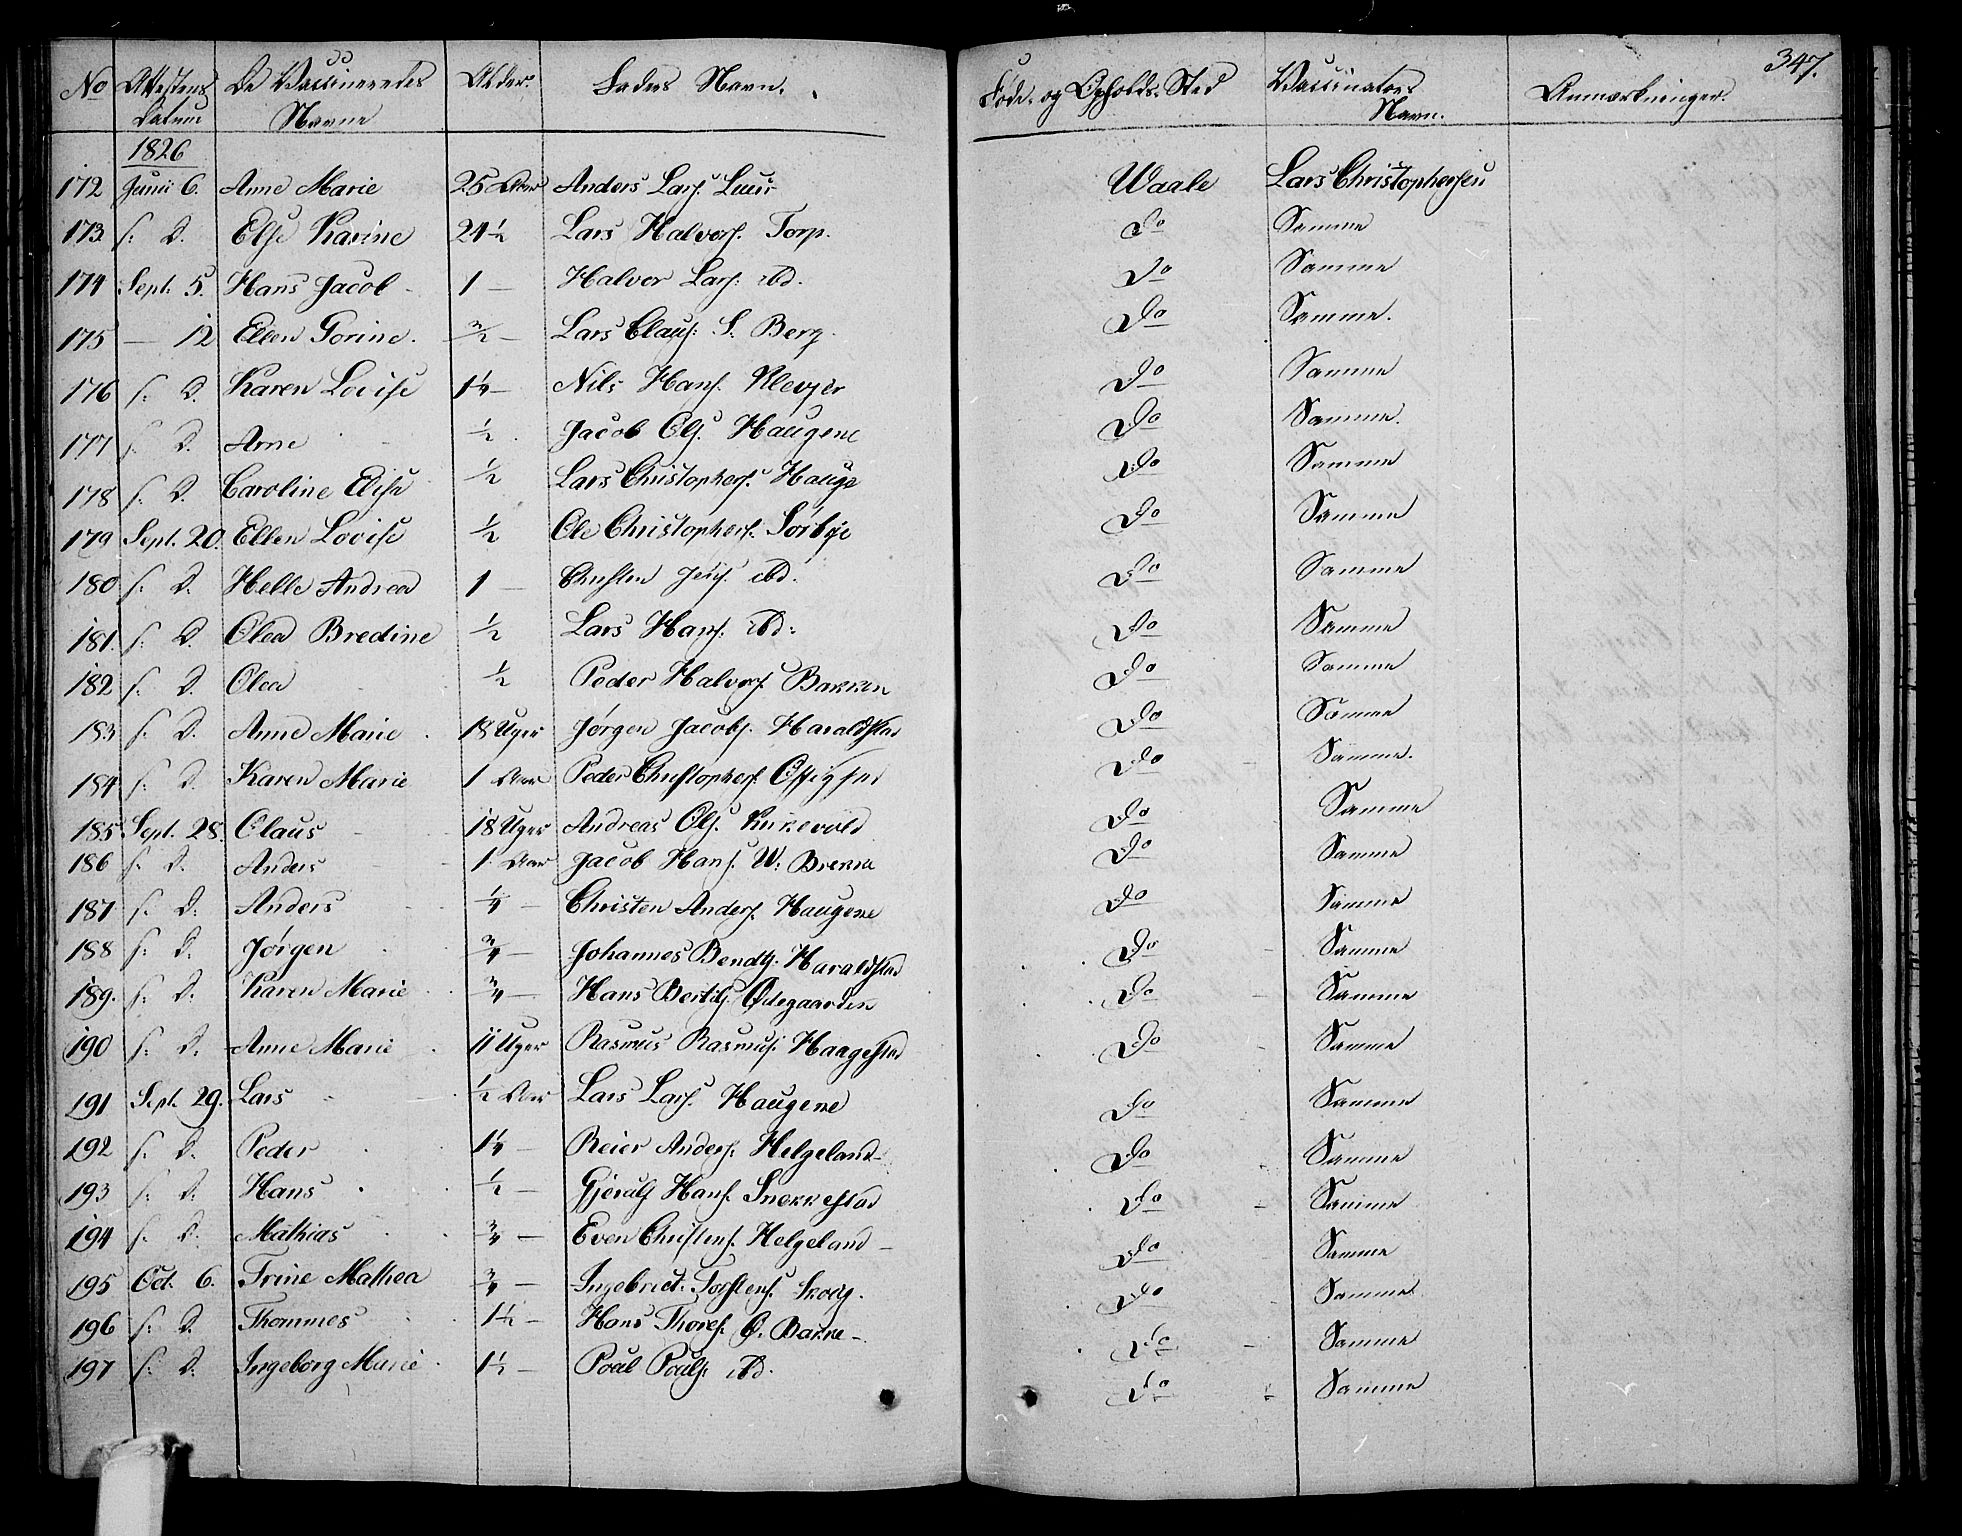 347.
No Attestens Datum De Vaccineredes Navne Alder. Faders Navn. Føde- og Opholds-Sted Vaccinators Navn. Anmærkninger.
1826
172 Junii 6. Anne Marie 25 Aar Anders Lars. Waale Lars Christophersen
173 s. D. Else Karine 24½ Lars Halvors. Torp. Do Samme
174 Sept. 5. Hans Jacob 1 — Halvor Lars. ibd. Do Samme
175 — 12 Ellen Torine. — Lars Claus. S. Berg. Do Samme.
176 s. D. Karen Lovise 1¼ — Nils Hans. Klevjer Do Samme
177 s. D. Arne ½ Jacob Ols. Haugene Do Samme.
178 s. D. Caroline Elise ½ Lars Christophers. Hauge Do Samme
179 Sept. 20. Ellen Lovise ½ Ole Christophers. Sörbye Do Samme
180 s. D. Helle Andrea 1 — Christen Jens. ibd. Do Samme
181. s. D. Olea Bredine ½ Lars Hans. ibd. Do Samme
182 s. D. Olea ½ Peder Halvors. Bakken Do Samme
183 s. D. Anne Marie 18 Uger Jørgen Jacobs. Haraldstad Do Samme
184 s. D. Karen Marie 1 Aar Peder Christophers. Do Samme.
185 Sept. 28. Claus 18 Uger Andreas Ols. Kirkevold Do Samme
186 s. D. Anders 1 Aar Jacob Hans. W. Brekke Do Samme
187 s. D. Anders ¼ — Christen Anders. Haugene Do Samme
188 s. D. Jørgen ¾ — Johannes Bendts. Haraldstad Do Samme
189. s. D. Karen Marie ¾ — Hans Bertils. Ødegaarden Do Samme
190 s. D. Anne Marie 11 Uger Rasmus Rasmus. Haagestad Do Samme
191 Sept. 29. Lars ½ Aar Lars Lars. Haugene Do Samme
192 s. D. Peder 1¼ — Reier Anders. Helgeland Do Samme
193 s. D. Hans ½ — Gjerulf Hans. Snekkestad Do Samme
194 s. D. Mathias ¾ — Even Christens. Helgeland — Do Samme
195 Oct. 6. Trine Mathea ¾ — Ingebrict. Torstens. Skoug. Do Samme
196 s. D. Thommes 1½ — Hans Thores. Ø. Bakke — Do Samme
197 s. D. Ingeborg Marie 1½ — Poul Pouls. ibd. Do Samme